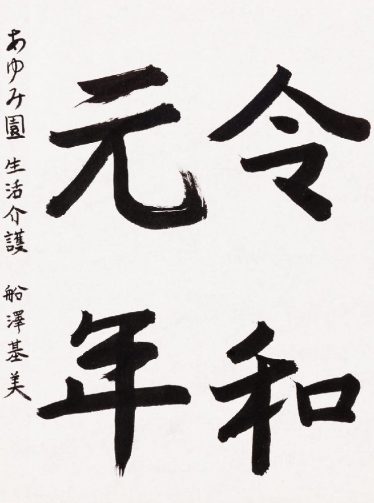 令和
元年
あゆみ園 生活介護 船澤基美